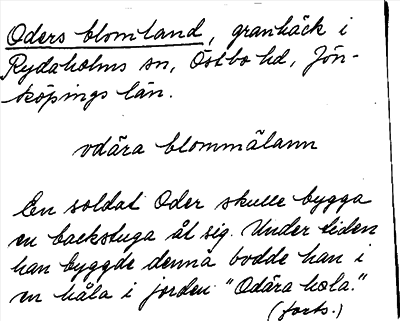 Oders blomland, granhäck i
Rydaholms sn, Östbo hd, Jön-
köpings län.
vdära blommälann
En soldat Oder skulle bygga
en backstuga åt sig. Under tiden
han byggde denna bodde han i
en håla i jorden "Odära hola."
(forts.)